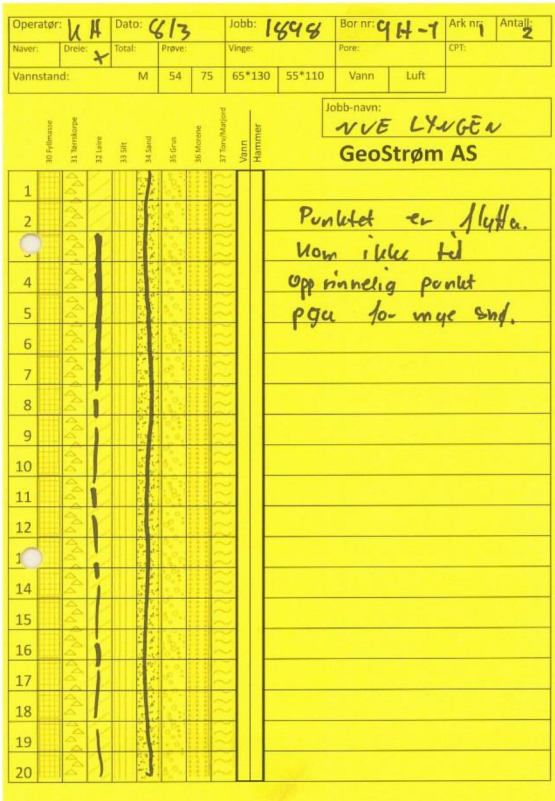 Operatør: KH Dato: 8/3 Jobb: 1898 Bor nr: 9H-1 Ark nr: 1 Antall: 2
Naver: Dreie: x Total: Prøve: Vinge: Pore: CPT:
Vannstand: M 54 75 65*130 55*110 Vann Luft
Jobb-navn:
NVE LYNGEN
GeoStrøm AS
30 Fyllmasse
31 Tørrskorpe
32 Leire
33 Silt
34 Sand
35 Grus
36 Morene
37 Torv/Matjord
Vann
Hammer
1
2
Punktet er flytta.
3
Kom ikke til
4
Opprinnelig punkt
5
pga for mye snø.
6
7
8
9
10
11
12
14
15
16
17
18
19
20